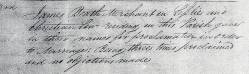 James Wrath Merchant in Eylie and
Christian Low residing in this Parish gave
in their names for proclamation in order
to Marriage. Being three times proclaimed
and no objections made